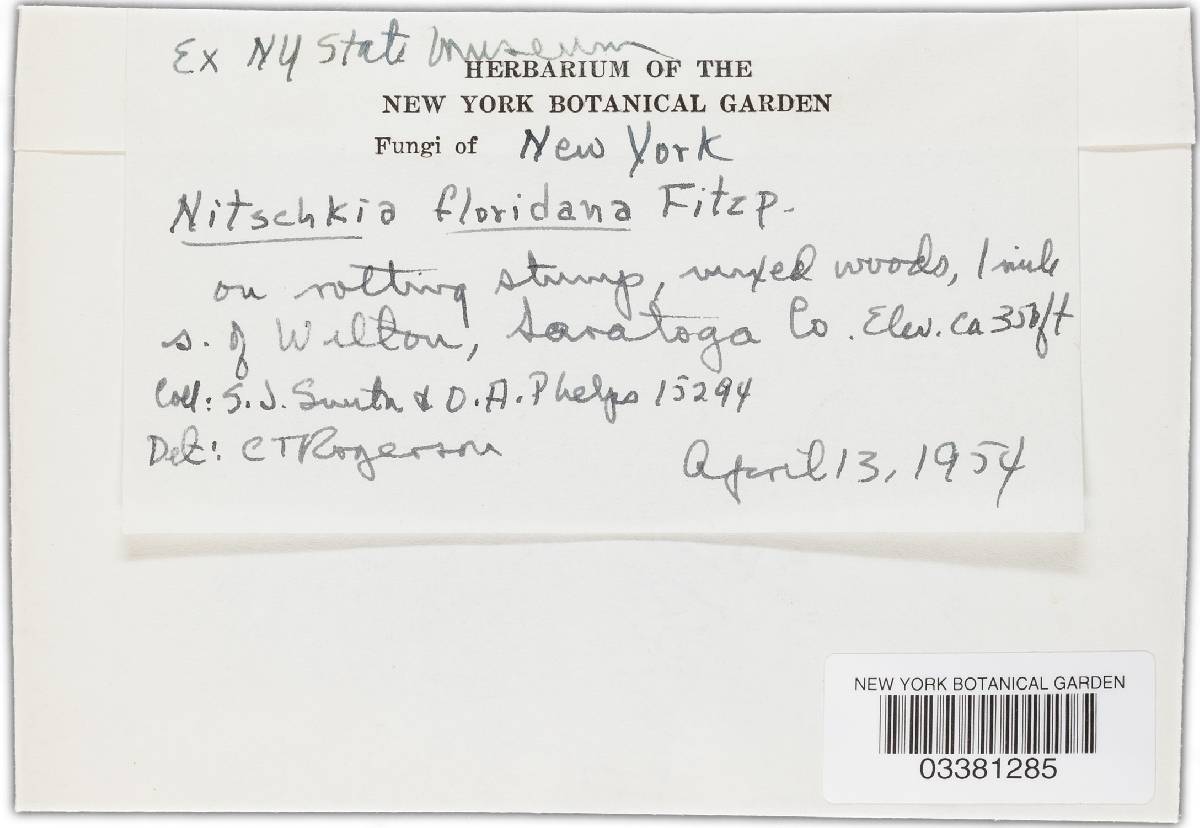 Ex NY State Museum
HERBARIUM OF THE
NEW YORK BOTANICAL GARDEN
Fungi of New York
Nitschkia floridana Fitzp.
on rotting stump, mixed woods, 1 mile
s. of Wilton, Saratoga Co. Elev. ca 350 ft
Coll: S.J. Smith & O.A. Phelps 15294
Det: CTRogerson
April 13, 1954
NEW YORK BOTANICAL GARDEN
03381285